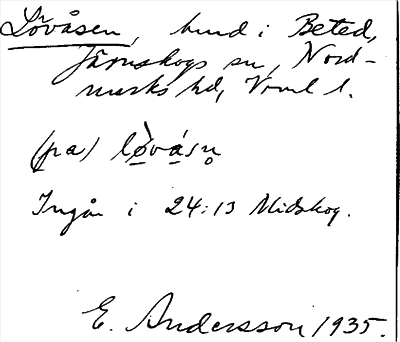 Lövåsen, hmd i Beted,
Järnskogs sn, Nord-
marks hd, Vrml l.
(pa) lø̀vásn̥
Ingår i 24:13 Midskog.
E. Andersson 1935.